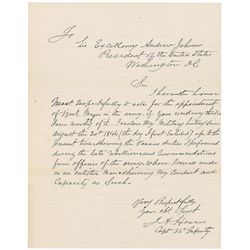 To
His Excellency Andrew Johnson
President of the United States
Washington D.C.
Sir
I have the honor
Most respectfully to ask for the appointment
of Brvt. Major in the army if you consider
me worthy of it. I enclose my Military history from
August the 20th 1846 (the day I first enlisted) up to the
present time showing the various duties I performed
during the late rebellion and recommendations
from officers of the army whom I served under
as an enlisted man showing my Conduct and
Capacity as Such.
Very Respectfully
Your Obt Servt
Capt 24 Infantry